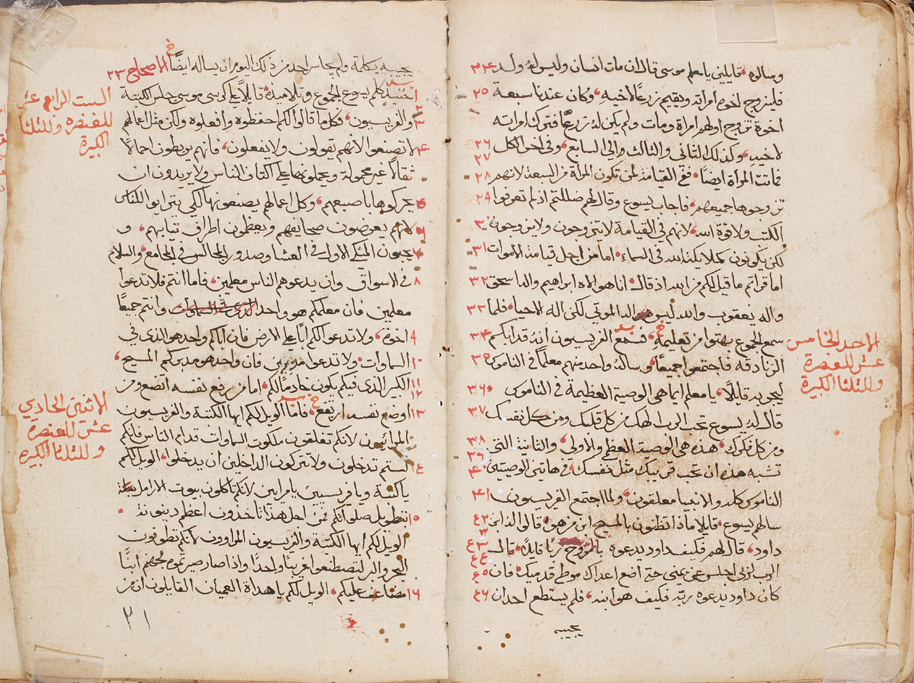 وسالوه قايلين يا معلم موسى قال ان مات انسان وليس له ولد ٢٤
فليتزوج اخوه امراته ويقيم زرعًا لاخيه وكان عندنا سبعة ٢٥
اخوة تزوج اولهم امراة ومات ولم يكن له زرعًا فترك امراته
لاخيه وكذلك الثاني والثالث والى السابع وفي اخر الكل ٢٦ ٢٧
ماتت المراة ايضًا ففي القيامة لمن تكون المراة من السبعة لانهم ٢٨
تزوجوها جميعهم فاجاب يسوع وقال لهم ضللتم اذ لم تعرفوا ٢٩
الكتب ولا قوة الله لانهم في القيامة لا يتزوجون ولا يزوجون ٣٠
لكن يكونون كملايكة الله في السماء اما من اجل قيامة الاموات ٣١
اما قراتم ما قيل لكم من الله اذ قال انا هو الاه ابراهيم واله اسحق ٣٢
واله يعقوب والله ليس هو اله الموتى لكن اله الاحيا فلما ٣٣
سمع الجموع بهتوا من تعليمه فسمع الفريسيون انه قد ابكم ٣٤
الزنادقة فاجتمعوا جميعًا وساله واحد منهم معلمًا في الناموس ٣٥
ليجربه قايلًا يا معلم ايما هي الوصية العظيمة في الناموس ٣٦
قال له يسوع تحب الرب الهك من كل قلبك ومن كل نفسك ٣٧
ومن كل فكرك هذه هي الوصية العظمى والاولى والثانية التي ٣٨
تشبه هذه ان تحب قريبك مثل نفسك في هاتين الوصيتين ٤٠
الناموس كله والانبيا معلقون ولما اجتمع الفريسيون ٤١
سالهم يسوع قايلا ماذا تظنون بالمسيح ابن من هو قالوا له ابن ٤٢
داود قال لهم فكيف داود يدعوه بالروح ربًا قايلًا قال ٤٣
الرب لربي اجلس عن يمني حتى اضع اعداك موطى قدميك فان ٤٥
كان داود يدعوه ربه فكيف هو ابنه فلم يستطع احد ان ٤٦
يجيبه
الاحد الخامس
عشر للعنصرة
وللثلثا الكبيرة
يجيبه بكلمة ولم يجاسر احد من ذلك اليوم ان يساله ايضًا الاصحاح ٢٣
حينيذ كلم يسوع الجموع وتلاميذه قايلًا على كرسي موسى جلس الكتبة
والفريسيون فكل ما قالوا لكم احفظوه وافعلوه ولكن مثل اعمالهم
لا تصنعوا لانهم يقولون ولا يفعلون فانهم يربطون احمالًا
ثقالًا غير محمولة ويحملونها على اكتاف الناس ولا يريدون ان
يحركوها باصبعهم وكل اعمالهم يصنعونها لكي يتراوا للناس
لانهم يعرضون صحايفهم ويعظمون اطراف ثيابهم و
يحبون المتكى الاول في العشا وصدور المجالس في المجامع والسلام
في الاسواق وان يدعوهم الناس معلمين فاما انتم فلا تدعوا
معلمين فان معلمكم هو واحد وانتم جميعًا
اخوة ولا تدعوا لكم ابًا على الارض فان اباكم واحد هو الذي في
السماوات ولا تدعوا مدبرين فان واحد هو مدبركم المسيح
الكبير الذي فيكم يكون خادمًا لكم اما من رفع نفسه اتضع ومن
اوضع نفسه ارتفع فاما الويل لكم ايها الكتبة والفريسيون
المراييون لانكم تغلقون ملكوت السماوات قدام الناس فانكم
لستم تدخلون ولا تتركون الداخلين ان يدخلوا الويل لكم
يا كتبة ويا فريسيين يا مرايين لانكم تاكلون بيوت الارامل
لتطويل صلواتكم فمن اجل هذا تاخذون اعظم دينونة
الويل لكم ايها الكتبة والفريسيون المراوون لانكم تطوفون
البحر والبر لتصطنعوا غريبًا واحدًا واذا صار صيرتموه لجهنم ابنًا
مضاعف عليكم الويل لكم يا هداة العميان القايلون ان من
٢١
السبت الرابع عشر
للعنصرة وللثلثا
الكبيرة
الاثنين الحادي
عشر للعنصرة
وللثلثا الكبيرة